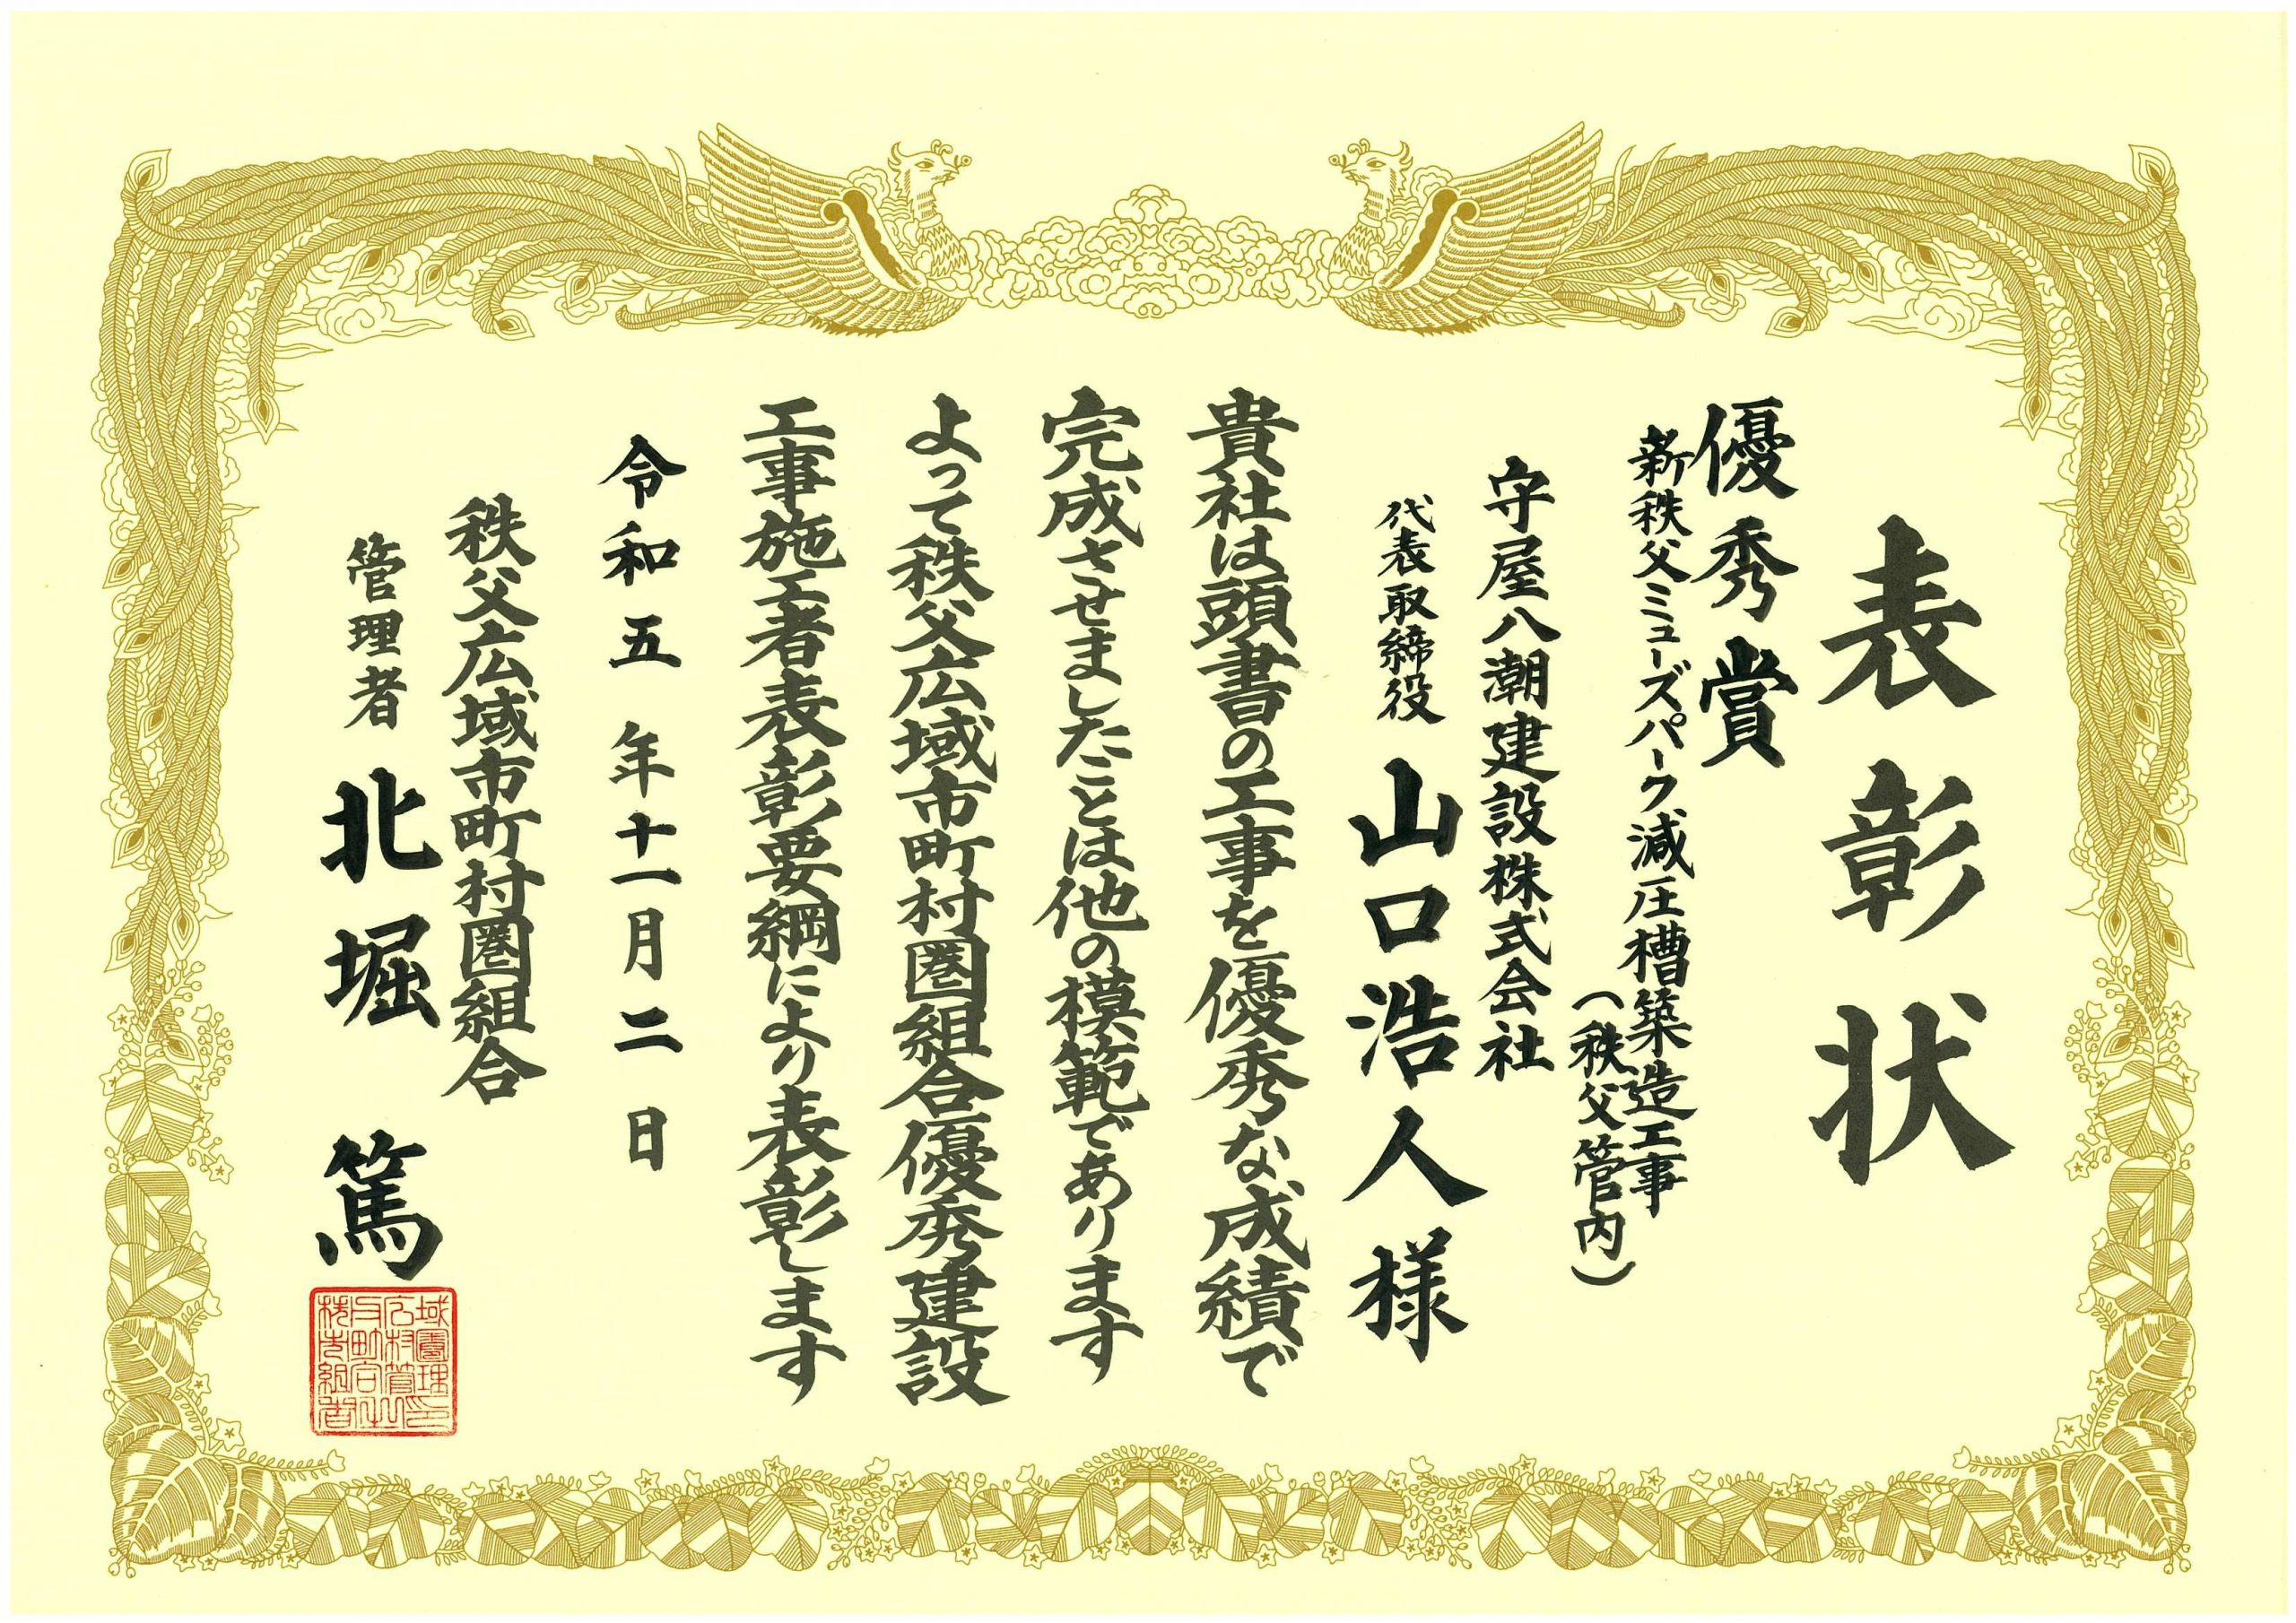 表彰状
優秀賞
新秩父ミューズパーク減圧槽築造工事
（秩父管内）
守屋八潮建設株式会社
代表取締役 山口浩人様
貴社は頭書の工事を優秀な成績で
完成させましたことは他の模範であります
よって秩父広域市町村圏組合優秀建設
工事施工者表彰要綱により表彰します
令和五年十一月二日
秩父広域市町村圏組合
管理者 北堀篤